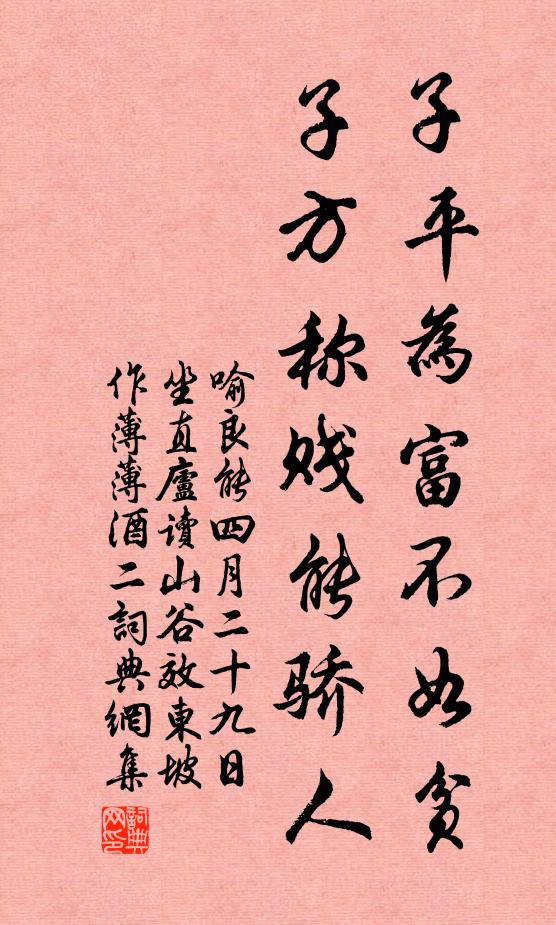 子平為富不如貧
子方称贱能骄人
喻良能四月二十九日
坐直廬讀山谷效東坡
作薄薄酒二詞典網集
詞典网印